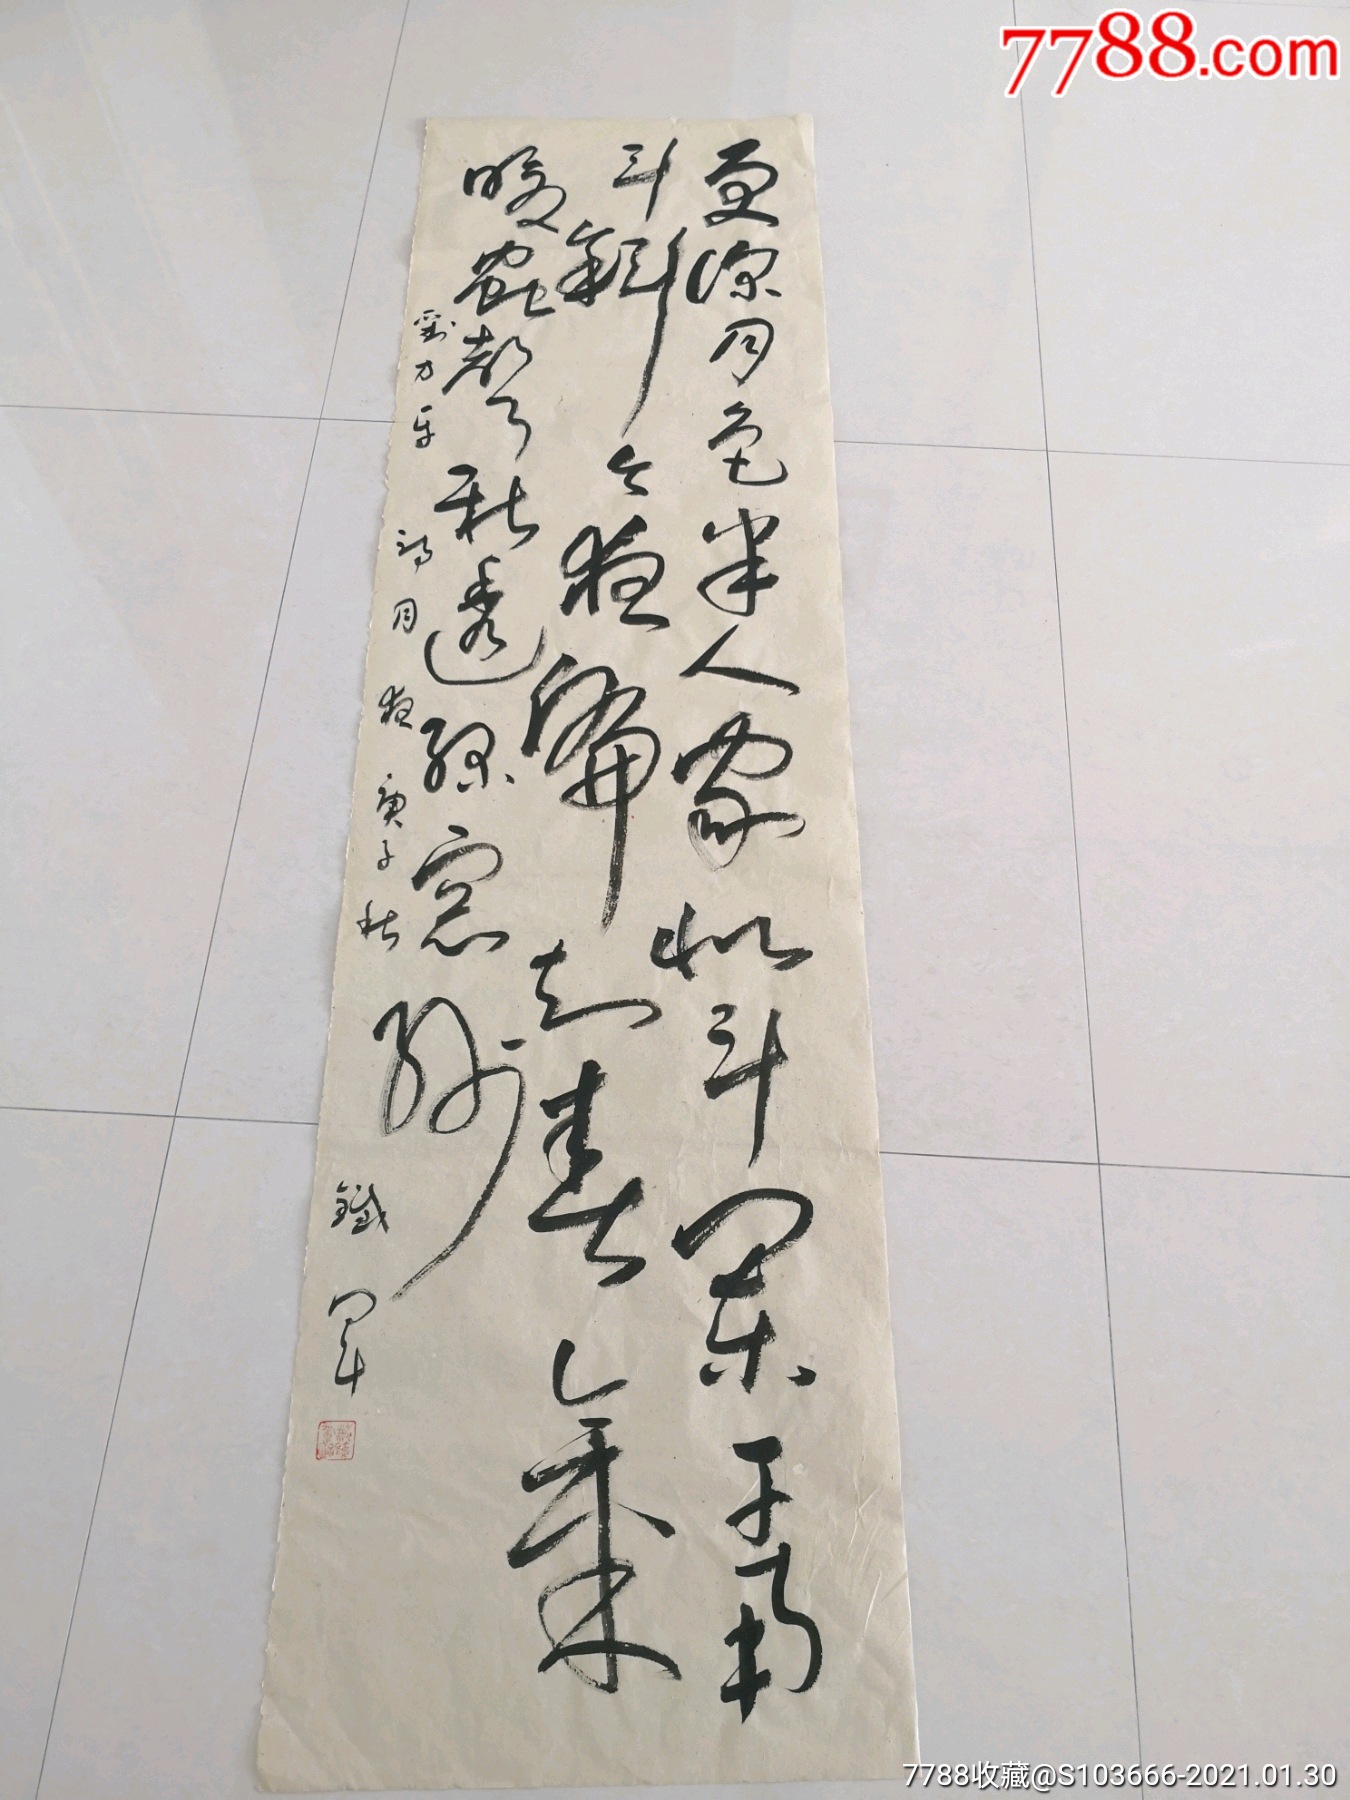 7788.com
更深月色半人家北斗闌干南
斗斜今夜偏知春氣
暖蟲聲新透綠窓紗
劉方平詩月夜庚子秋鐵軍
7788收藏@S103666-2021.01.30